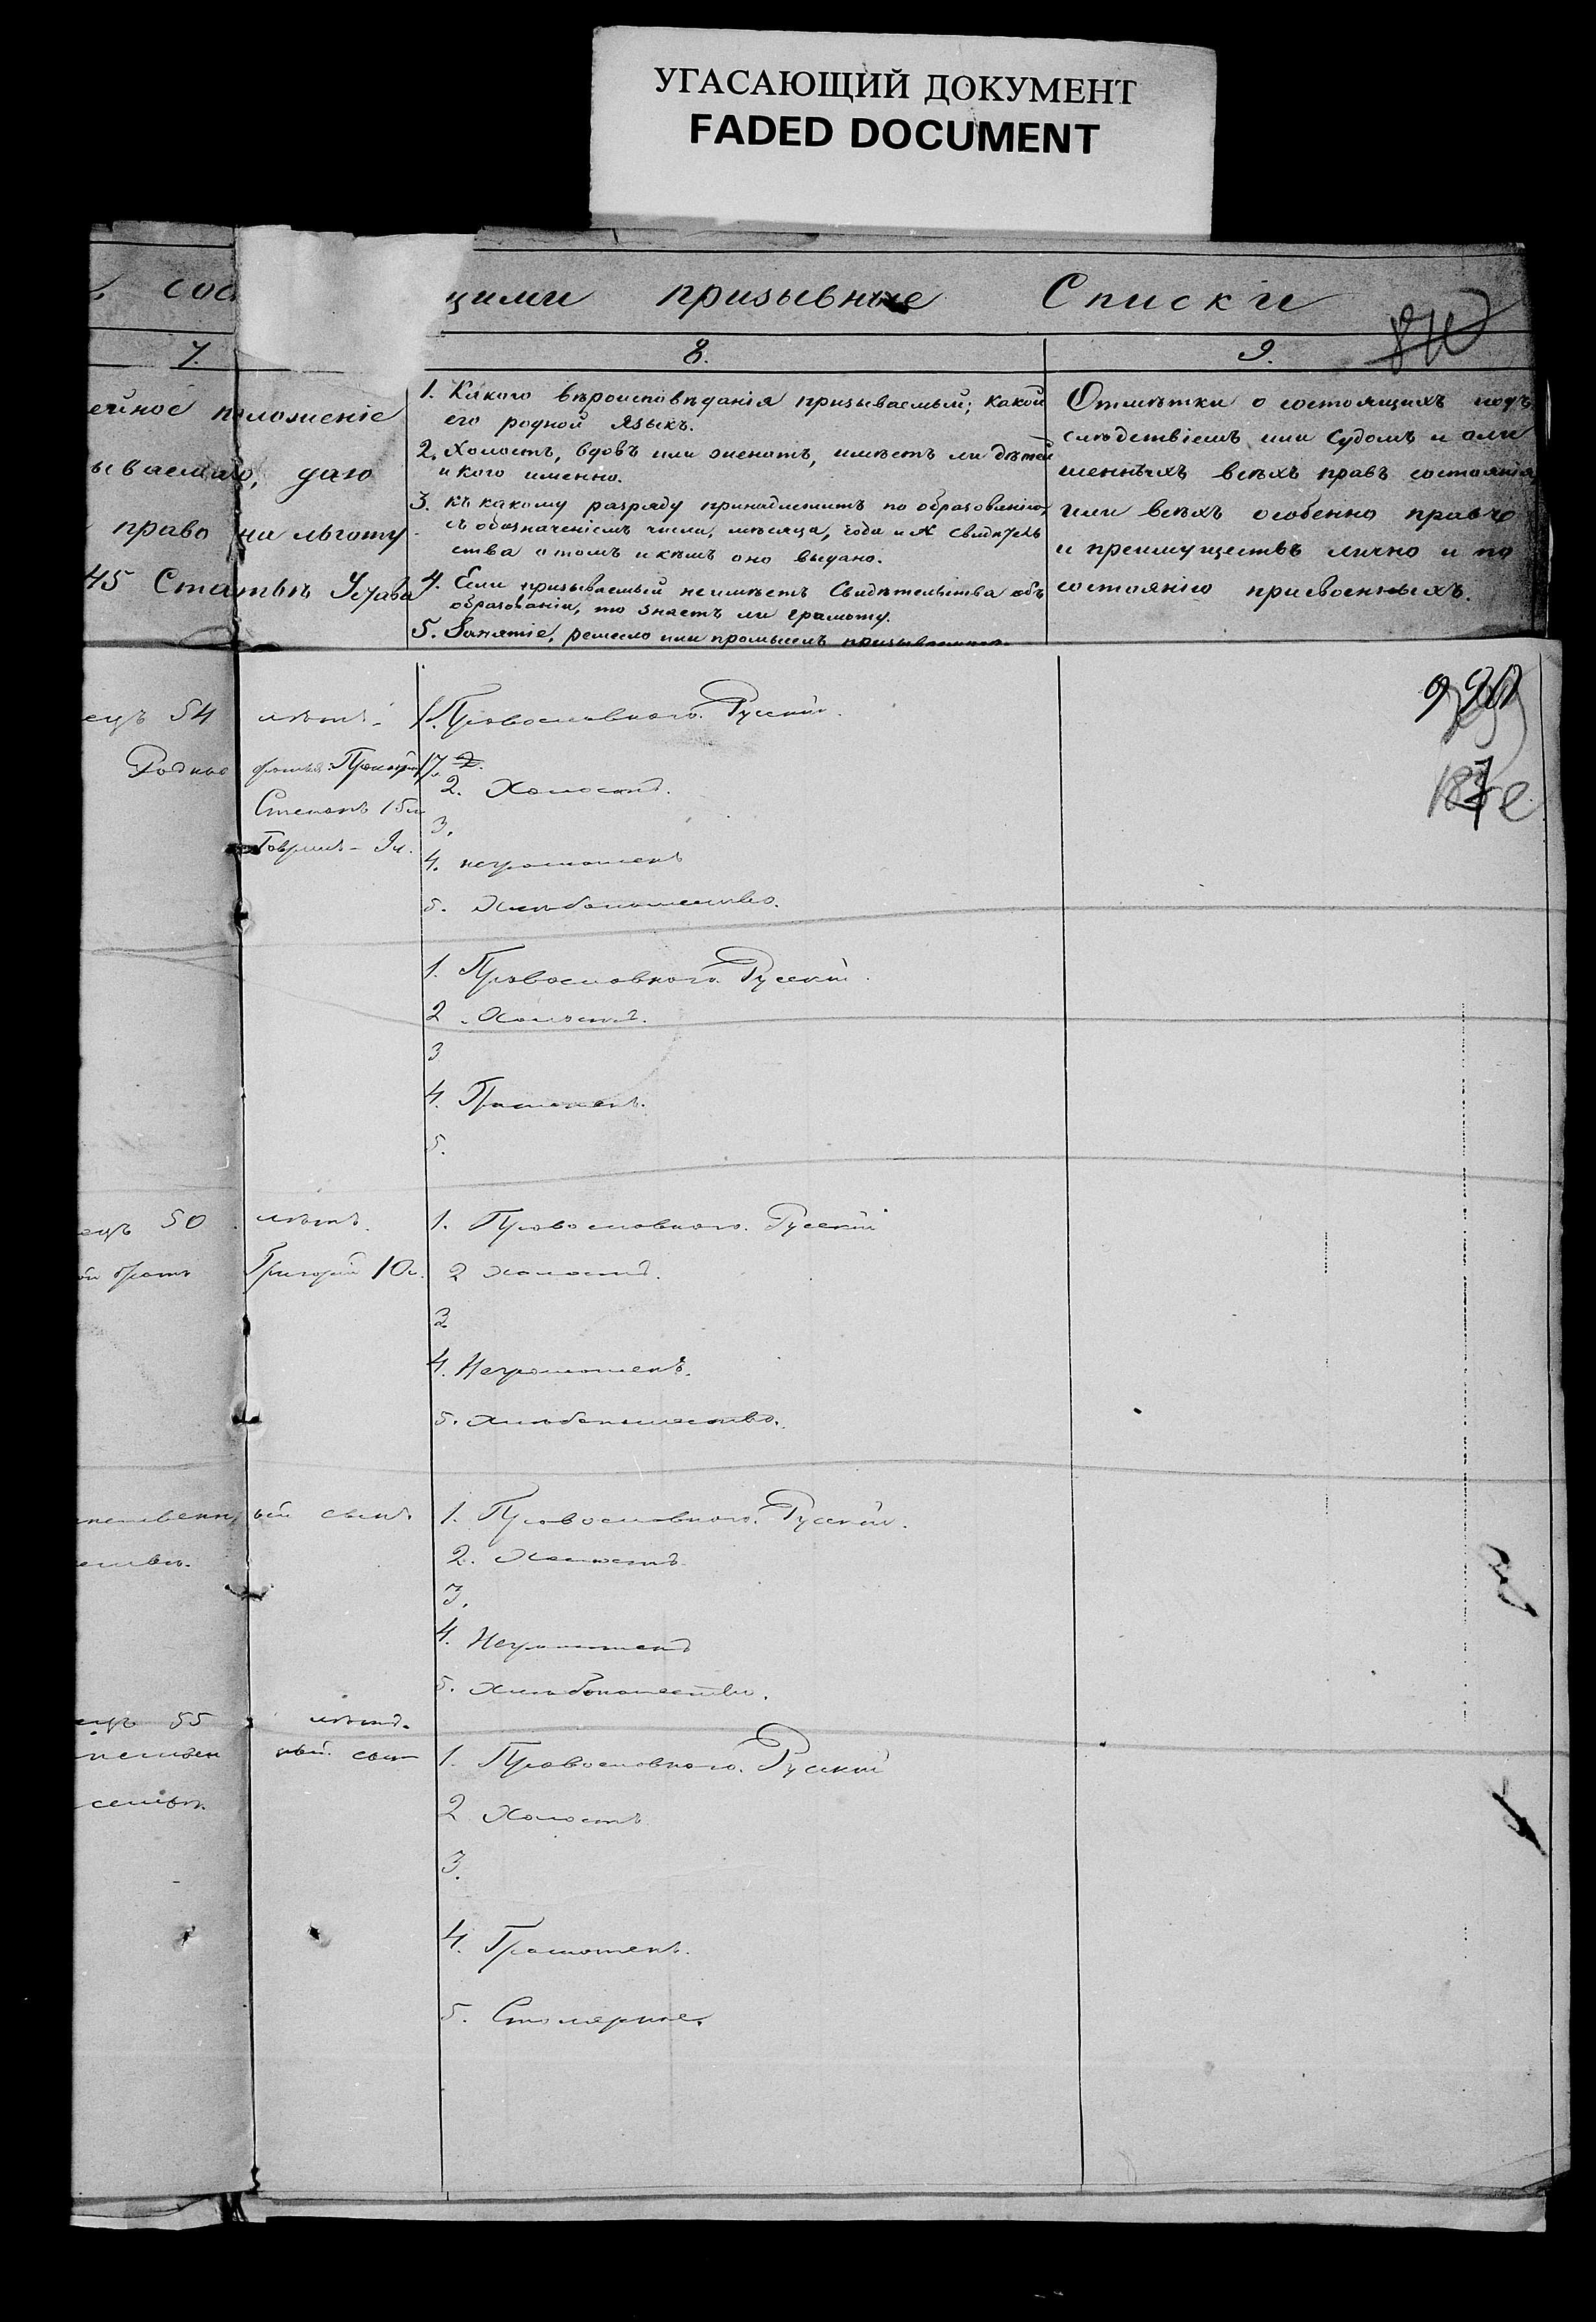 УГАСАЮЩИЙ ДОКУМЕНТ
FADED DOCUMENT
щими призывные Списки
7.
8.
9.
ейное положеніе
ываемаго, даю
право на льготу
45 Статьѣ Устава
1. Какого вѣроисповѣданія призываемый; какой
его родной языкъ.
2. Холостъ, вдовъ или женатъ, имѣетъ ли дѣтей
и кого именно.
3. Къ какому разряду принадлежитъ по образованію
съ обозначеніемъ числа, мѣсяца, года и № свидѣтель
ства о томъ и кѣмъ оно выдано.
4. Если призываемый не имѣетъ Свидѣтельства объ
образованіи, то знаетъ ли грамоту.
5. Занятіе, ремесло или промыселъ призываемаго
Отмѣтки о состоящихъ подъ
слѣдствіемъ или судомъ и о ли
шенныхъ всѣхъ правъ состоянія
или всѣхъ особенно правъ
и преимуществъ лично и по
состоянію присвоенныхъ.
ецъ 54 лѣтъ
Родные
Степанъ 15л
Гаврилъ - 9л.
1. Православнаго. Русскій.
2. Холостъ.
3.
4. неграмотенъ
5. Хлѣбопашество.
990
1. Православнаго. Русскій.
2. Холостъ.
3
4. Грамотенъ.
5.
ецъ 50 лѣтъ.
ой братъ Григорій 10л.
1. Православнаго. Русскій
2 холостъ.
3
4. Неграмотенъ.
5. хлѣбопашество.
инственный сынъ
1. Православнаго. Русскій.
2. Холостъ
3.
4. Неграмотенъ
5. хлѣбопашество.
ецъ 55 лѣтъ.
ный сын
семьѣ.
1. Православнаго. Русскій
2 Холостъ
3.
4. Грамотенъ.
5. Столярное.